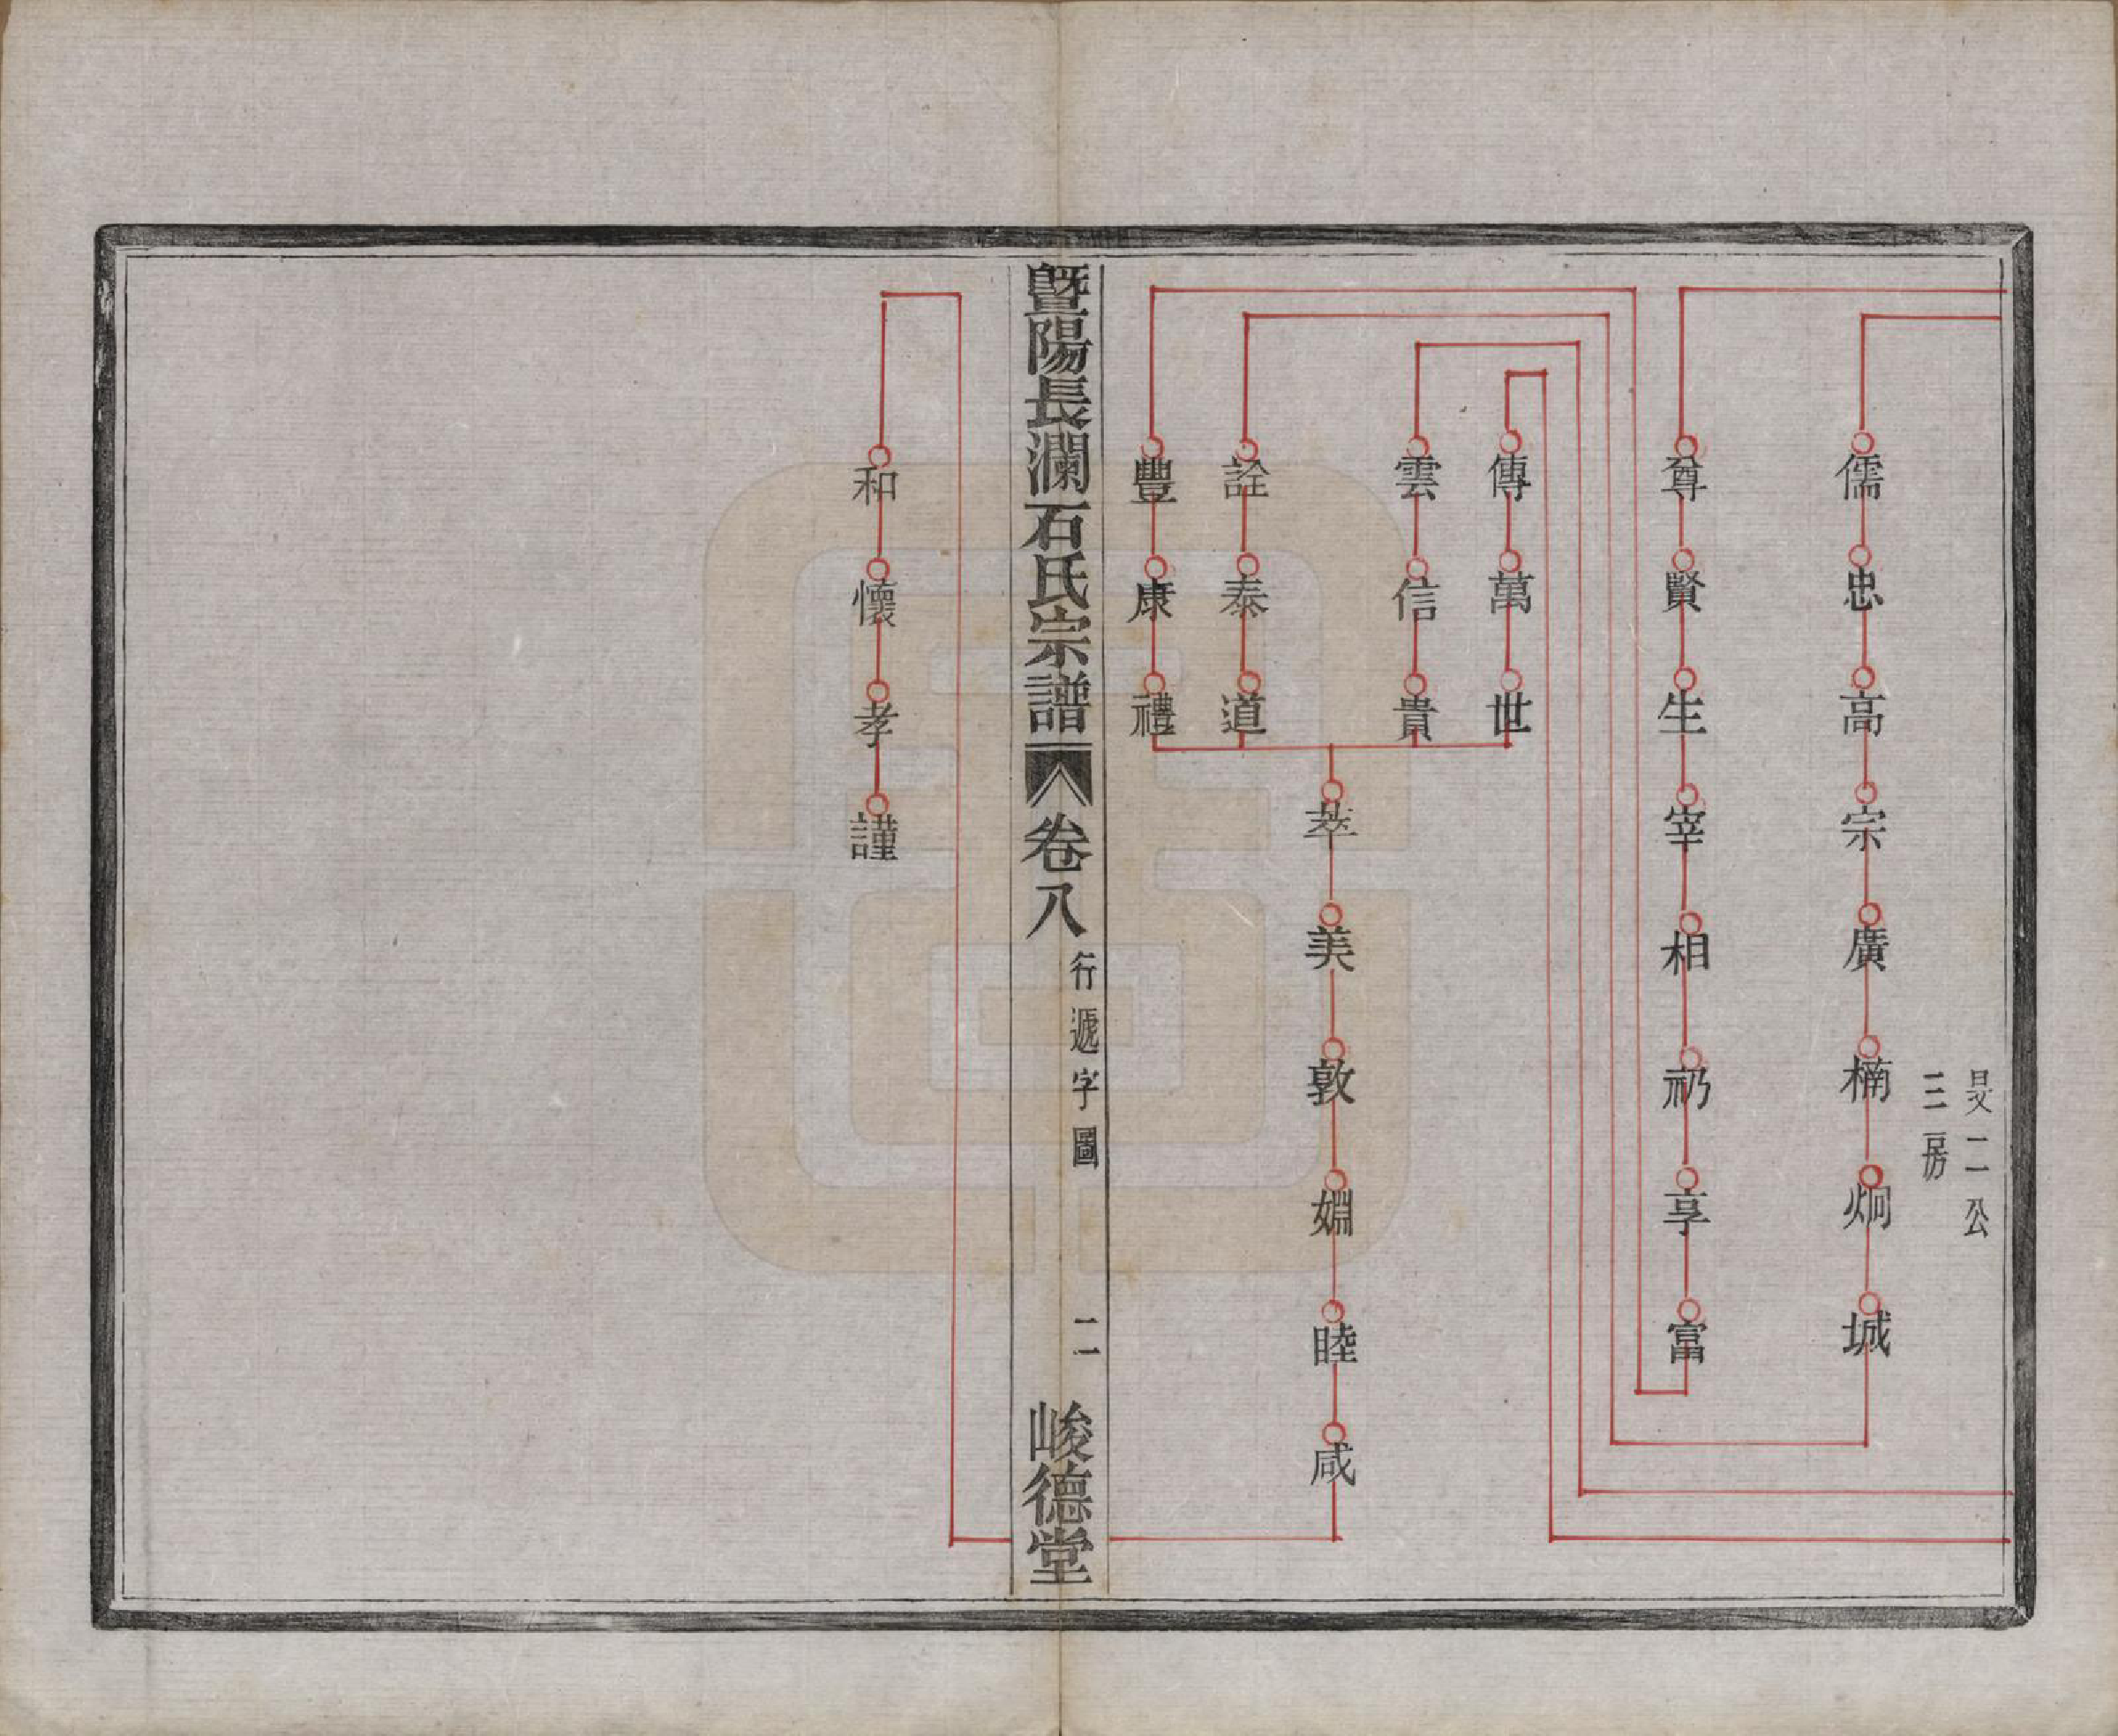 旻二公
三房
儒忠高宗廣楠炯城
尊賢生宰相礽享富
傳萬世
雲信貴
詮泰道
豐康禮
萃美敦嫻睦咸
暨陽長瀾石氏宗譜 卷八 行遞字圖 二 峻德堂
和懷孝謹